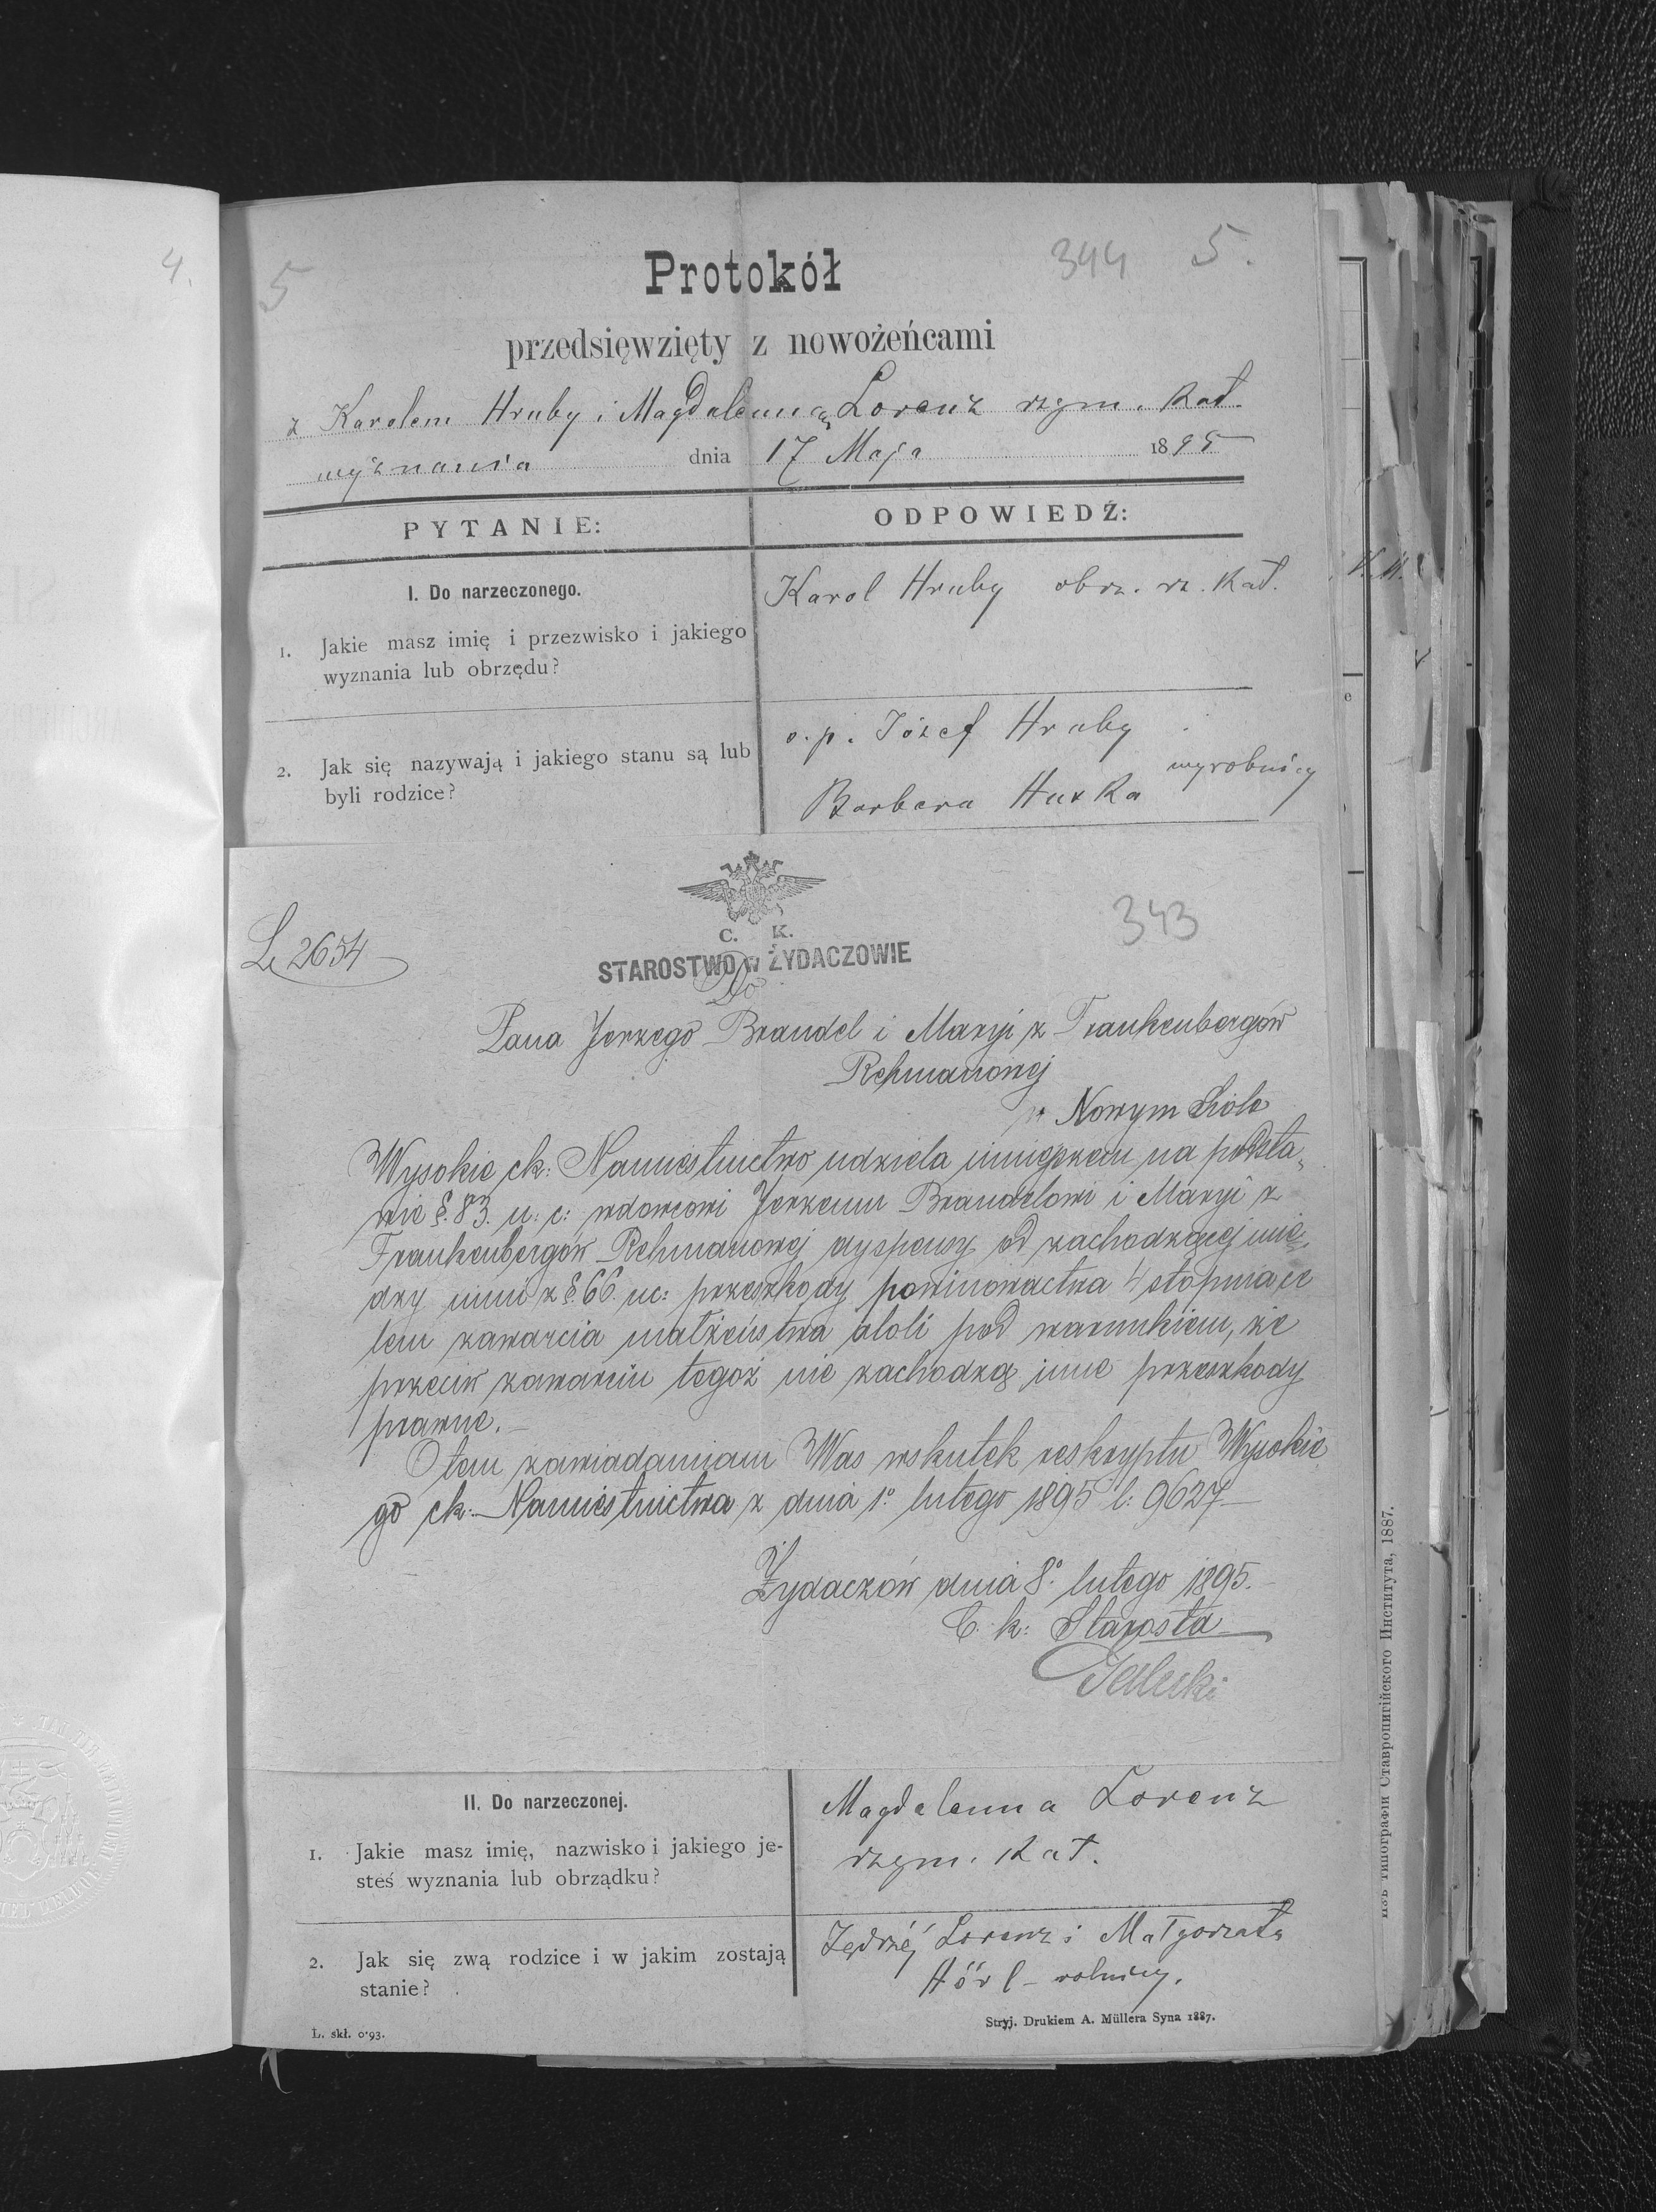 4.
5
344 5.
Protokół
przedsięwzięty z nowożeńcami
z Karolem Hruby i Magdalenną Lorenz rzym. kat.
wyznania dnia 17 Maja 1895
PYTANIE:
ODPOWIEDŹ:
I. Do narzeczonego.
1. Jakie masz imię i przezwisko i jakiego
wyznania lub obrzędu?
Karol Hruby obrz. rz. kat.
2. Jak się nazywają i jakiego stanu są lub
byli rodzice?
o. p. Józef Hruby
wyrobnicy
Barbara
C. K.
STAROSTWO w ŻYDACZOWIE
343
L. 2654
Do
Pana Jerzego Brandel i Maryi z Frankenbergów
Rehmanowej
w Nowym Siole
Wysokie ck: Namiestnictwo udziela niniejszem na podsta„
wie §. 83. u: c: wdowcowi Jerzemu Brandelowi i Maryi z
Frankenbergów Rehmanowej dyspensy od zachodzącej mię„
dzy nimi z §. 66. uc: przeszkody powinowactwa 4 stopnia ce
lem zawarcia małżeństwa atoli pod warunkiem, że
przeciw zawarciu tegoż nie zachodzą inne przeszkody
prawne.—
O tem zawiadamiam Was wskutek reskryptu Wysokie„
go ck: Namiestnictwa z dnia 1º lutego 1895 l: 9627—
Żydaczów dnia 8º lutego 1895.
C. k: Starosta
II. Do narzeczonej.
1. Jakie masz imię, nazwisko i jakiego je-
steś wyznania lub obrządku?
Magdalenna Lorenz
rzym. kat.
2. Jak się zwą rodzice i w jakim zostają
stanie?
Jędrzéj Lorenz i Małgorzata
Hörl – rolnicy.
L. skł. 0·93.
Stryj. Drukiem A. Müllera Syna 1887.
Изъ типографіи Ставропигійского Института, 1887.